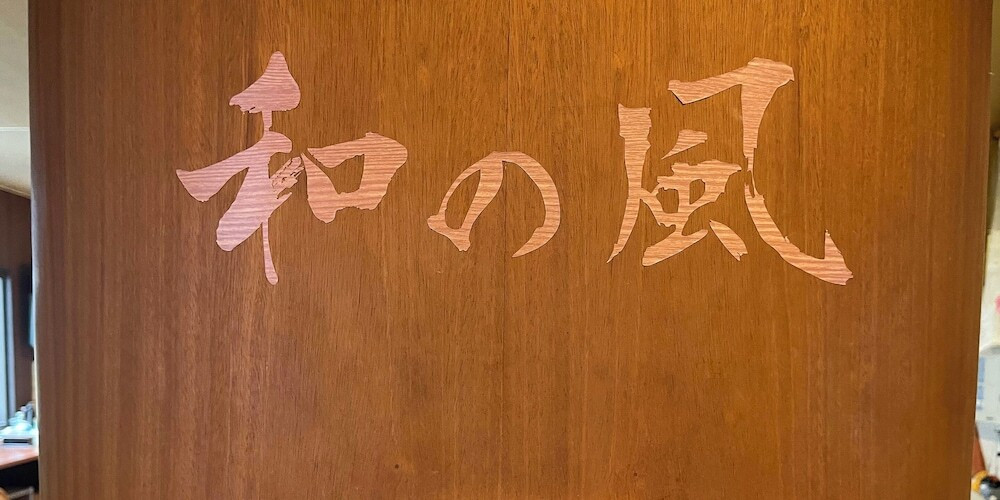 和の風